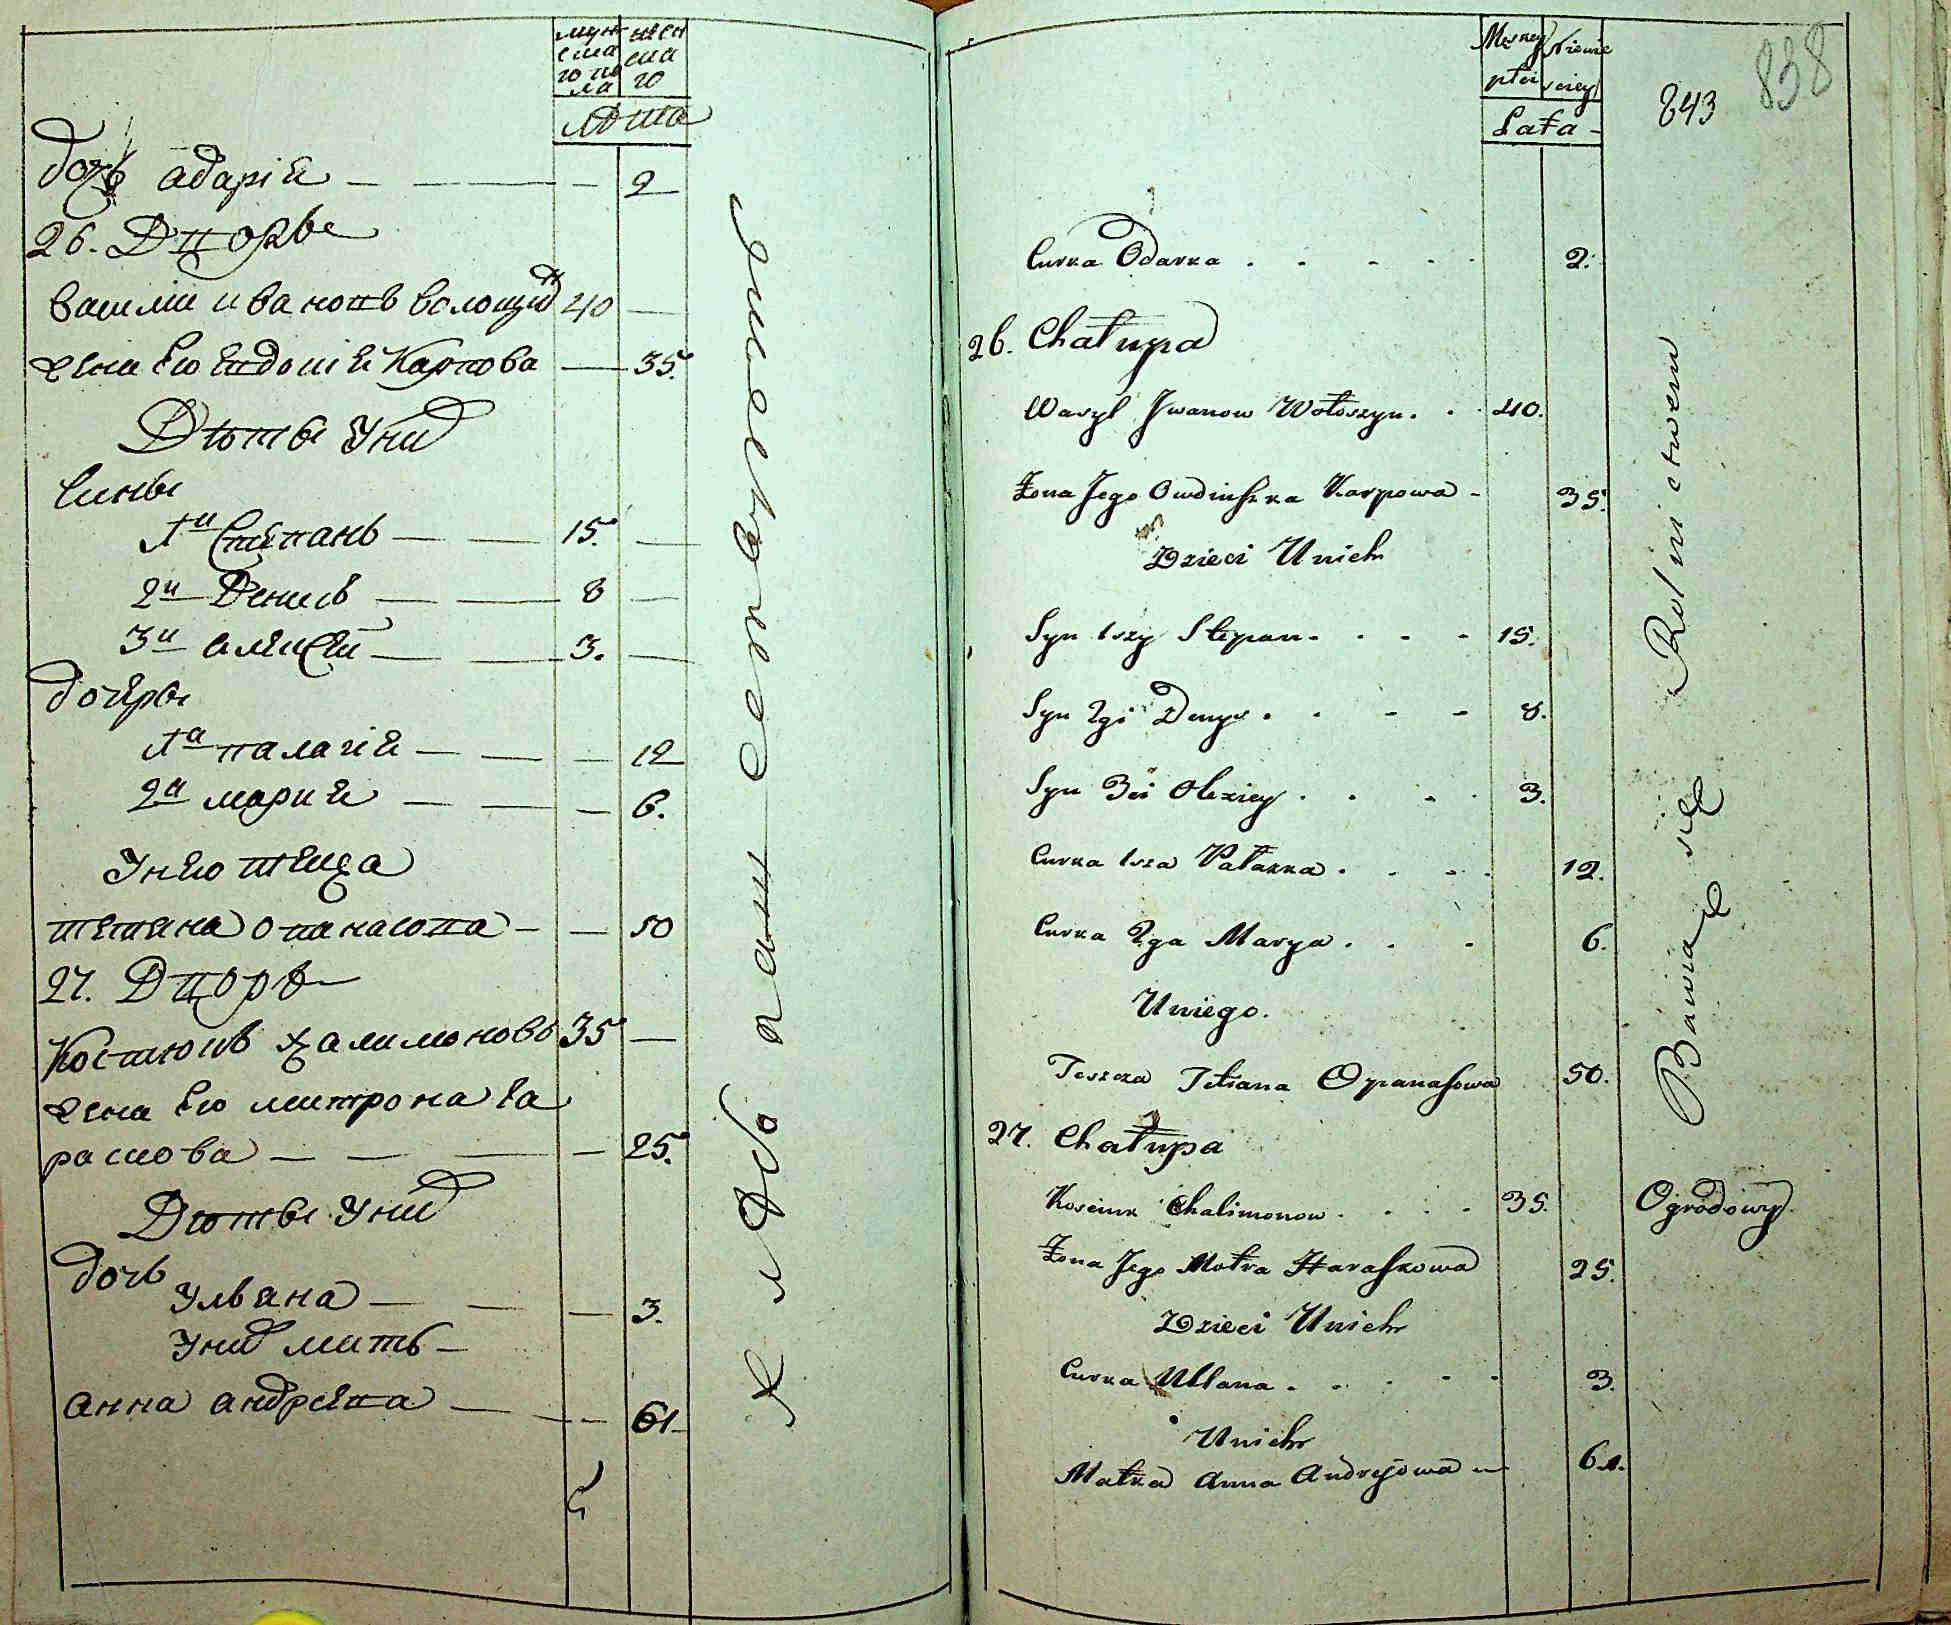 мужеска го пола
женска го
лѣта
дочь Адарія — 2
26. Дворъ
Василий Ивановъ Волошин 40 —
жена Его Евдокія Карпова — 35.
Дѣти У них
Сины
1й Степанъ — 15.
2й Денисъ — 8
3й алексей — 3.
дочеры
1а палагія — 12
2а мария — 6.
У него теща
тетяна Опанасова — 50
27. Дворъ
Костюкъ Халимоновъ 35 —
жена Его митрона Га
раскова — 25.
Дѣти У них
дочь
Улвяна — 3.
У них мать —
анна андреева — 61
Хлѣбопашествомъ
843 838
Męzkiey płci
Niewie sciey
Lata
Curka Odarka . . . . 2.
26. Chałupa
Wasyl Jwanow Wołoszyn . . 40.
Żona Jego Owdiuszka Karpowa - 35.
Dzieci Unich
Syn 1szy Stepan . . . 15.
Syn 2gi Denys . . . 8.
Syn 3ci Olexiey . . . 3.
Curka 1sza Pałazka . . . 12.
Curka 2ga Marya . . . 6.
Uniego.
Teszcza Tetiana Opanasowa 50.
27. Chałupa
Kosciuk Chalimonow . . . 35. Ogrodowy.
Żona Jego Motra Haraskowa 25.
Dzieci Unich
Curka Ullana . . . . 3.
Unich
Matka Anna Andrejowa — 61.
Bawia się Rolnictwem